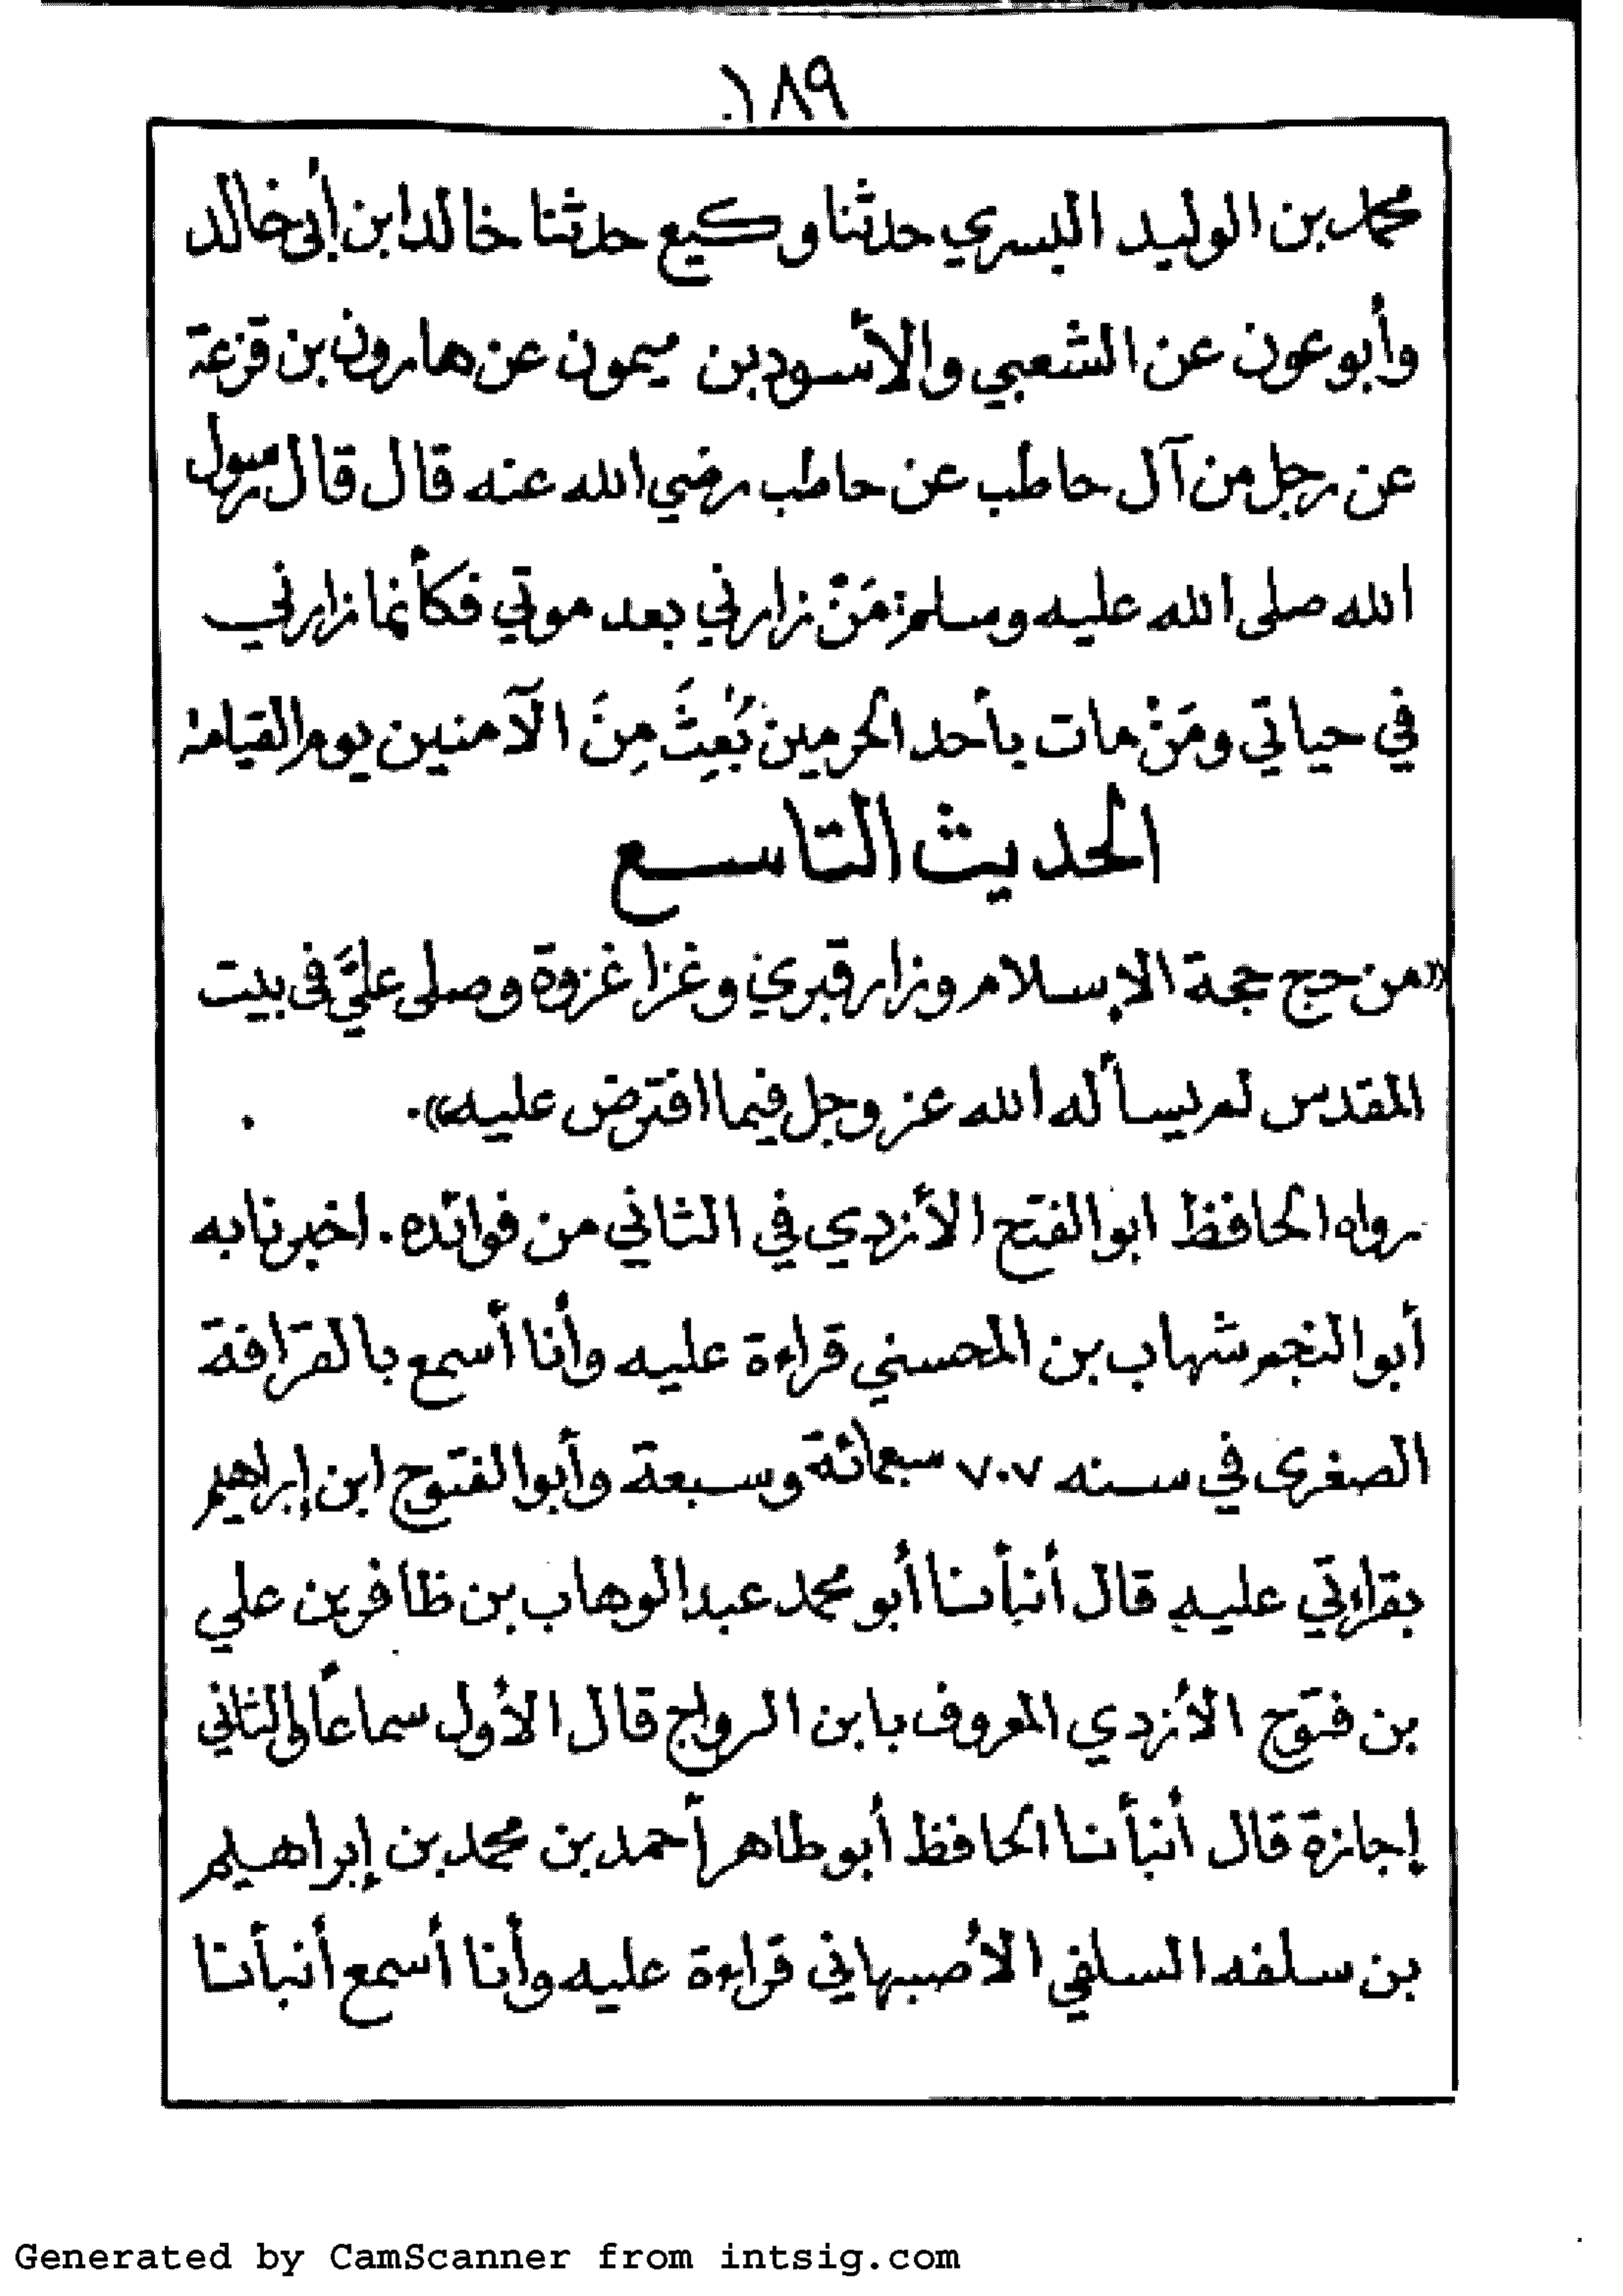 ١٨٩
محمد بن الوليد البسري حدثنا وكيع حدثنا خالد ابن أبي خالد
وأبو عون عن الشعبي والأسود بن ميمون عن هارون بن قزعة
عن رجل من آل حاطب عن حاطب رضي الله عنه قال قال رسول
الله صلى الله عليه وسلم: مَنْ زارني بعد موتي فكأنما زارني
في حياتي ومَنْ مات بأحد الحرمين بُعِثَ مِنَ الآمنين يوم القيامة
الحديث التاسع
«من حج حجة الإسلام وزار قبري وغزا غزوة وصلى عليَّ في بيت
المقدس لم يسأله الله عز وجل فيما افترض عليه».
رواه الحافظ ابو الفتح الأزدي في الثاني من فوائده. اخبرنا به
أبو النجم شهاب بن المحسني قراءة عليه وأنا أسمع بالقرافة
الصغرى في سنه ٧٠٧ سبعمائة وسبعة وأبو الفتوح ابن إبراهيم
بقراءتي عليه قال أنبأنا أبو محمد عبد الوهاب بن ظافر بن علي
بن فتوح الأزدي المعروف بابن الرواج قال الأول سماعاً والثاني
إجازة قال أنبأنا الحافظ أبو طاهر أحمد بن محمد بن إبراهيم
بن سلفه السلفي الأصبهاني قراءة عليه وأنا أسمع أنبأنا
Generated by CamScanner from intsig.com